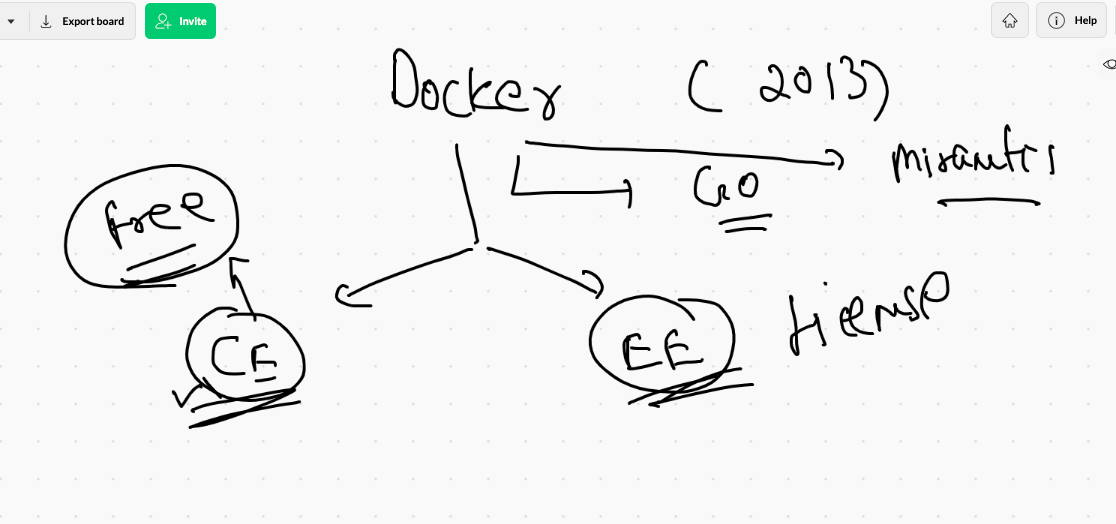 Export board
Invite
Help
Docker ( 2013)
misantis
GO
free
CE
EE
License